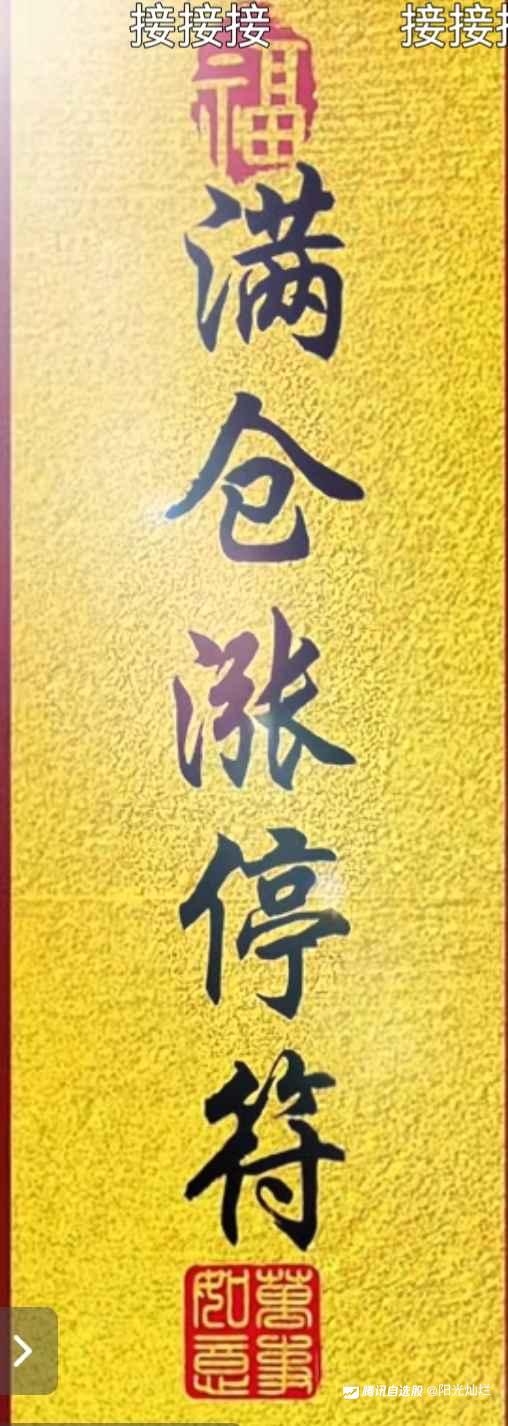 接接接 接接接
福
满仓涨停符
萬事如意
腾讯自选股 @阳光灿烂